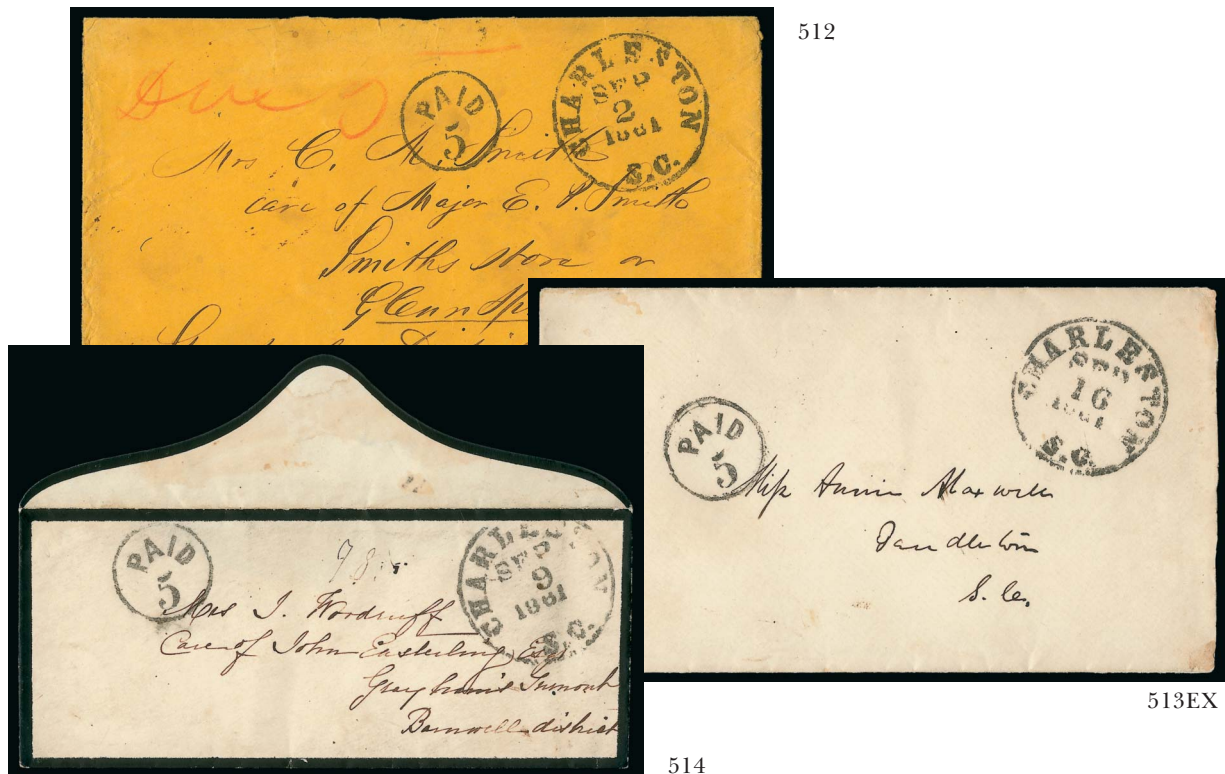 512
Due
PAID
5
CHARLESTON
SEP
2
1861
S.C.
Mrs C. M. Smith
care of Major E. P. Smith
Smiths store or
Glenn Sp
513EX
PAID
5
CHARLESTON
SEP
16
1861
S.C.
Miss Annie Maxwell
Pendleton
S. C.
514
PAID
5
CHARLESTON
SEP
9
1861
S.C.
Mrs J. Woodruff
Care of John Easterling Esqr
Barnwell district